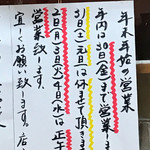 年末年始の営業
年内は30日(金)まで営業し
31日(土)元日は休ませて頂きま
2日(月)3日(火)4日(水)は正午
営業致します。
宜しくお願い致します。店